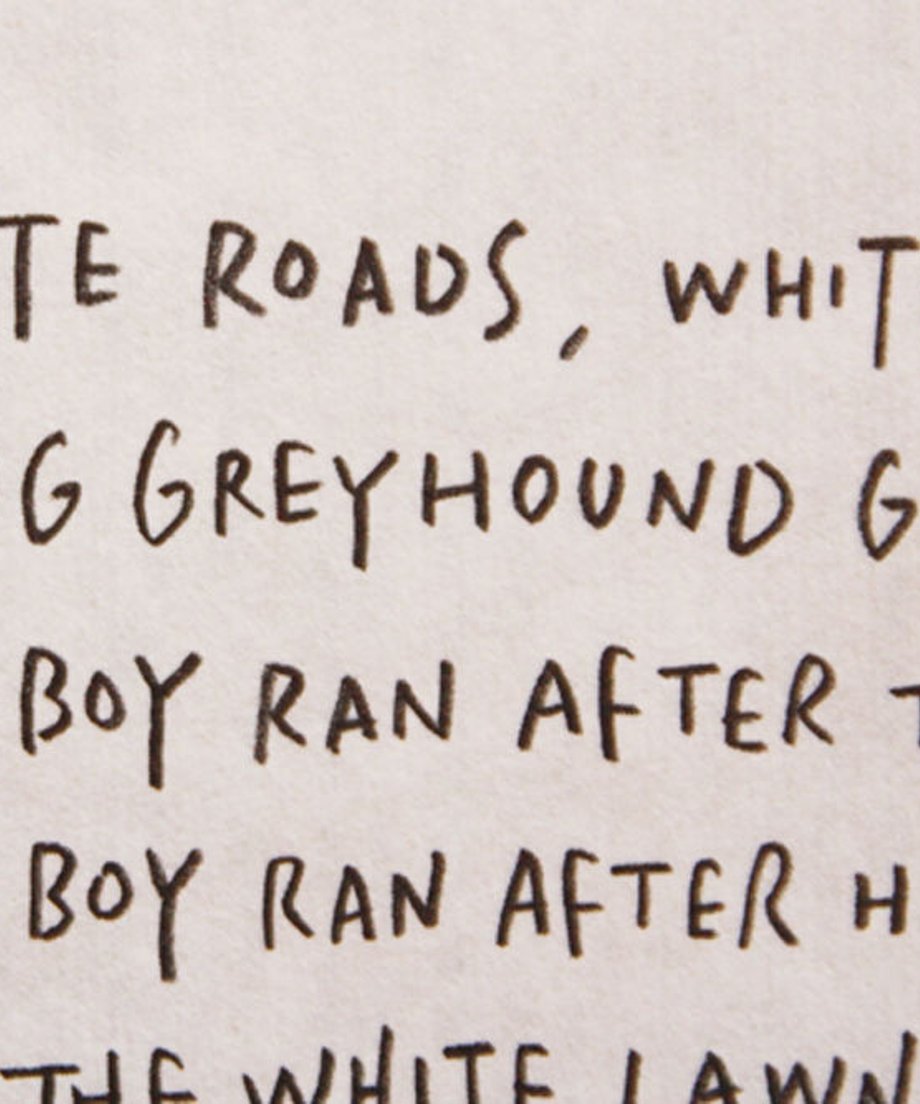 TE ROADS, WHIT
G GREYHOUND G
BOY RAN AFTER T
BOY RAN AFTER H
THE WHITE LAWN